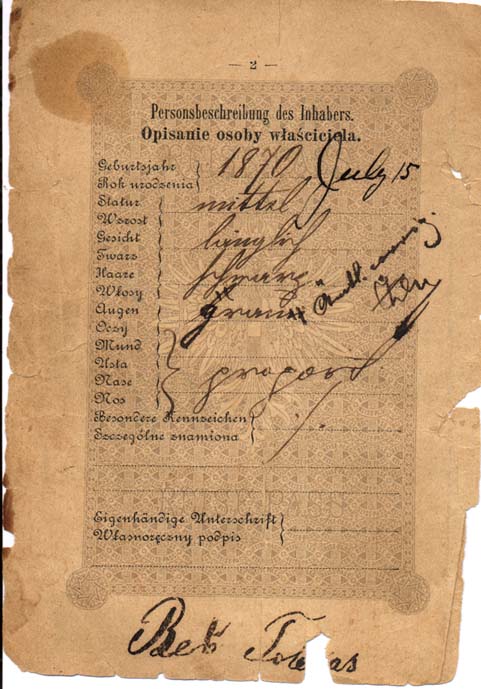 — 2 —
Personsbeschreibung des Inhabers.
Opisanie osoby właściciela.
Geburtsjahr
Rok urodzenia
1870 July 15
Statur
Wzrost
mittel
Gesicht
Twarz
länglich
Haare
Włosy
schwarz
Augen
Oczy
grau
Mund
Usta
Nase
Nos
proport
Besondere Kennzeichen
Szczególne znamiona
Eigenhändige Unterschrift
Własnoręczny podpis